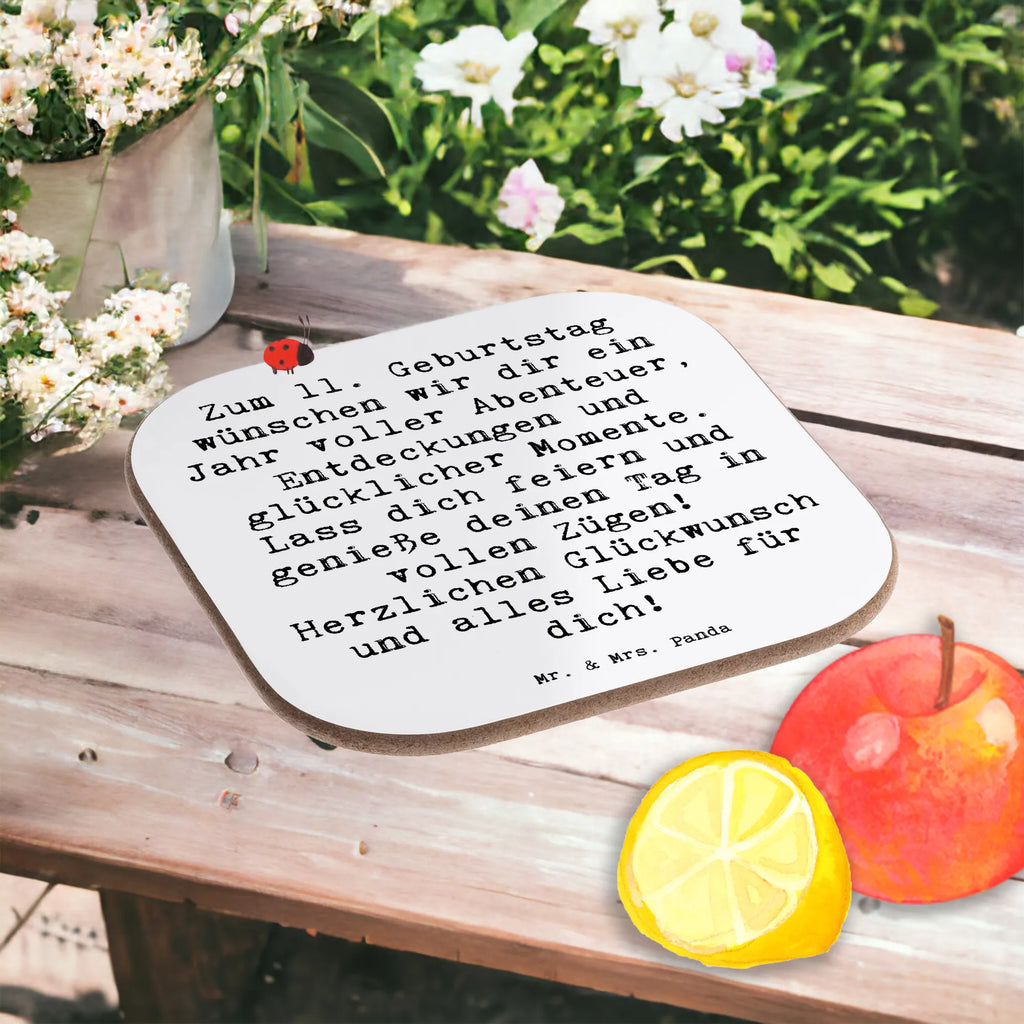 Zum 11. Geburtstag
wünschen wir dir ein
Jahr voller Abenteuer,
Entdeckungen und
glücklicher Momente.
Lass dich feiern und
genieße deinen Tag in
vollen Zügen!
Herzlichen Glückwunsch
und alles Liebe für
dich!
Mr. & Mrs. Panda